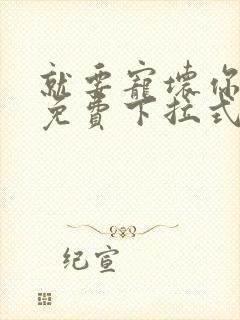 就要寵壞你
免費下拉式
纪宣